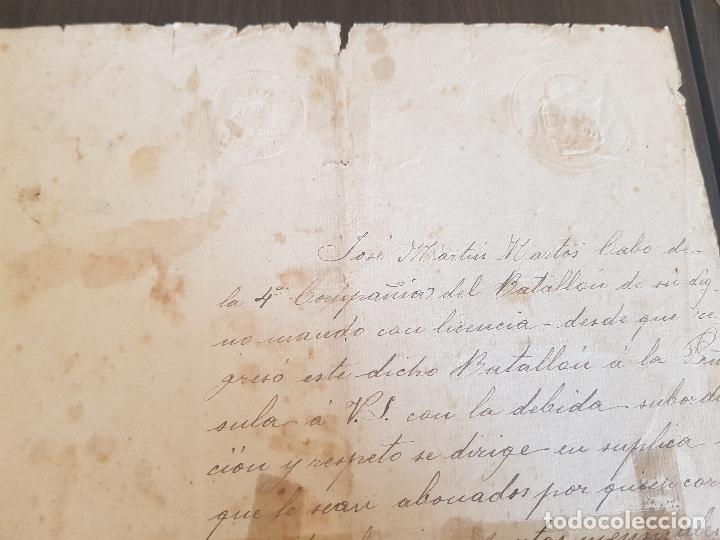 José Martin Martos Cabo de
la 4ª Compañia del Batallón de su dig
no mando con licencia desde que in
gresó este dicho Batallón á la Penin
sula á V.S. con la debida subordi
ción y respeto se dirige en suplica
que le sean abonados por quien cor
mensuales
todocoleccion
todocoleccion.net